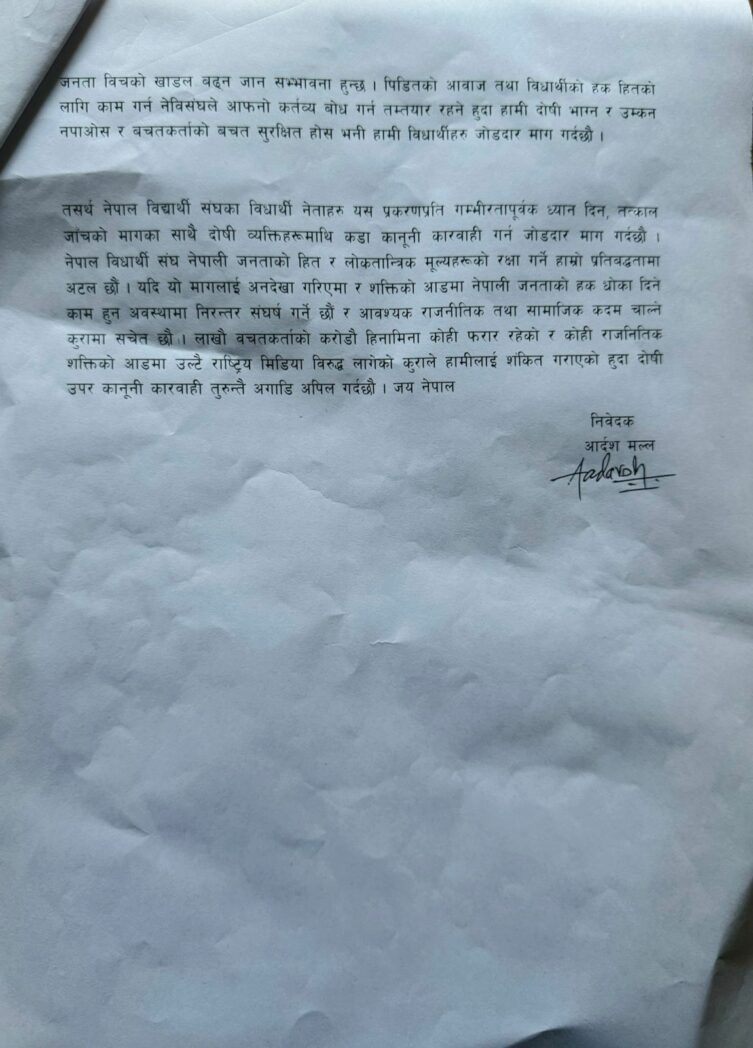 जनता विचको खाडल बढ्न जान सम्भावना हुन्छ । पिडितको आवाज तथा विधार्थीको हक हितको
लागि काम गर्न नेविसंघले आफनो कर्तव्य बोध गर्न तम्तयार रहने हुदा हामी दोषी भाग्न र उम्कन
नपाओस र बचतकर्ताको बचत सुरक्षित होस भनी हामी विधार्थीहरु जोडदार माग गर्दछौ ।
तसर्थ नेपाल विद्यार्थी संघका विधार्थी नेताहरु यस प्रकरणप्रति गम्भीरतापूर्वक ध्यान दिन, तत्काल
जाँचको मागका साथै दोषी व्यक्तिहरूमाथि कडा कानूनी कारवाही गर्न जोडदार माग गर्दछौ ।
नेपाल विधार्थी संघ नेपाली जनताको हित र लोकतान्त्रिक मूल्यहरूको रक्षा गर्ने हाम्रो प्रतिवद्धतामा
अटल छौं । यदि यो मागलाई अनदेखा गरिएमा र शक्तिको आडमा नेपाली जनताको हक धोका दिने
काम हुन अवस्थामा निरन्तर संघर्ष गर्ने छौं र आवश्यक राजनीतिक तथा सामाजिक कदम चाल्ने
कुरामा सचेत छौ । लाखौ वचतकर्ताको करोडौ हिनामिना कोही फरार रहेको र कोही राजनितिक
शक्तिको आडमा उल्टै राष्ट्रिय मिडिया विरुद्ध लागेको कुराले हामीलाई शंकित गराएको हुदा दोषी
उपर कानूनी कारवाही तुरुन्तै अगाडि अपिल गर्दछौ । जय नेपाल
निवेदक
आर्दश मल्ल
Aadarsh